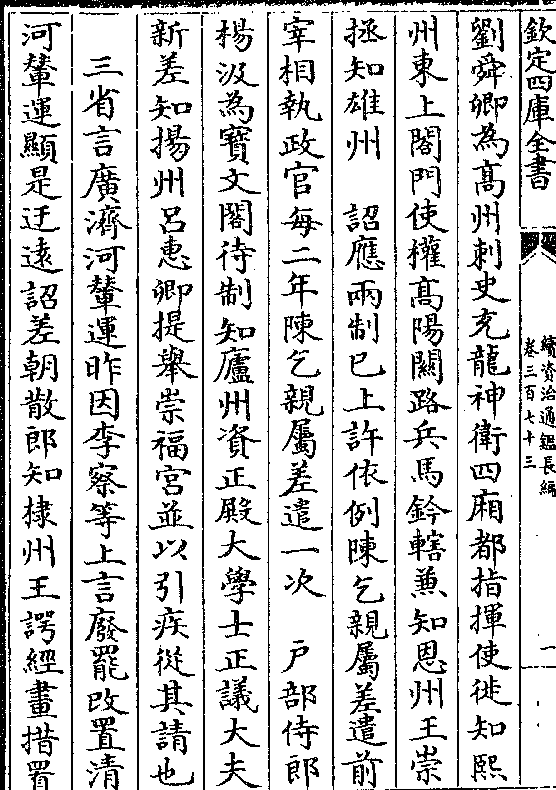 欽定四庫全書
續資治通鑑長編
卷三百七十三
一
劉舜卿為髙州刺史充龍神衛四廂都指揮使徙知熙
州東上閤門使權髙陽關路兵馬鈐轄兼知恩州王崇
拯知雄州　詔應兩制已上許依例陳乞親屬差遣前
宰相執政官每二年陳乞親屬差遣一次　戸部侍郎
楊汲為寳文閣待制知廬州資正殿大學士正議大夫
新差知揚州呂惠卿提舉崇福宫並以引疾從其請也
三省言廣濟河輦運昨因李察等上言廢罷改置清
河輦運顯是迂遠詔差朝散郎知棣州王諤經畫措置